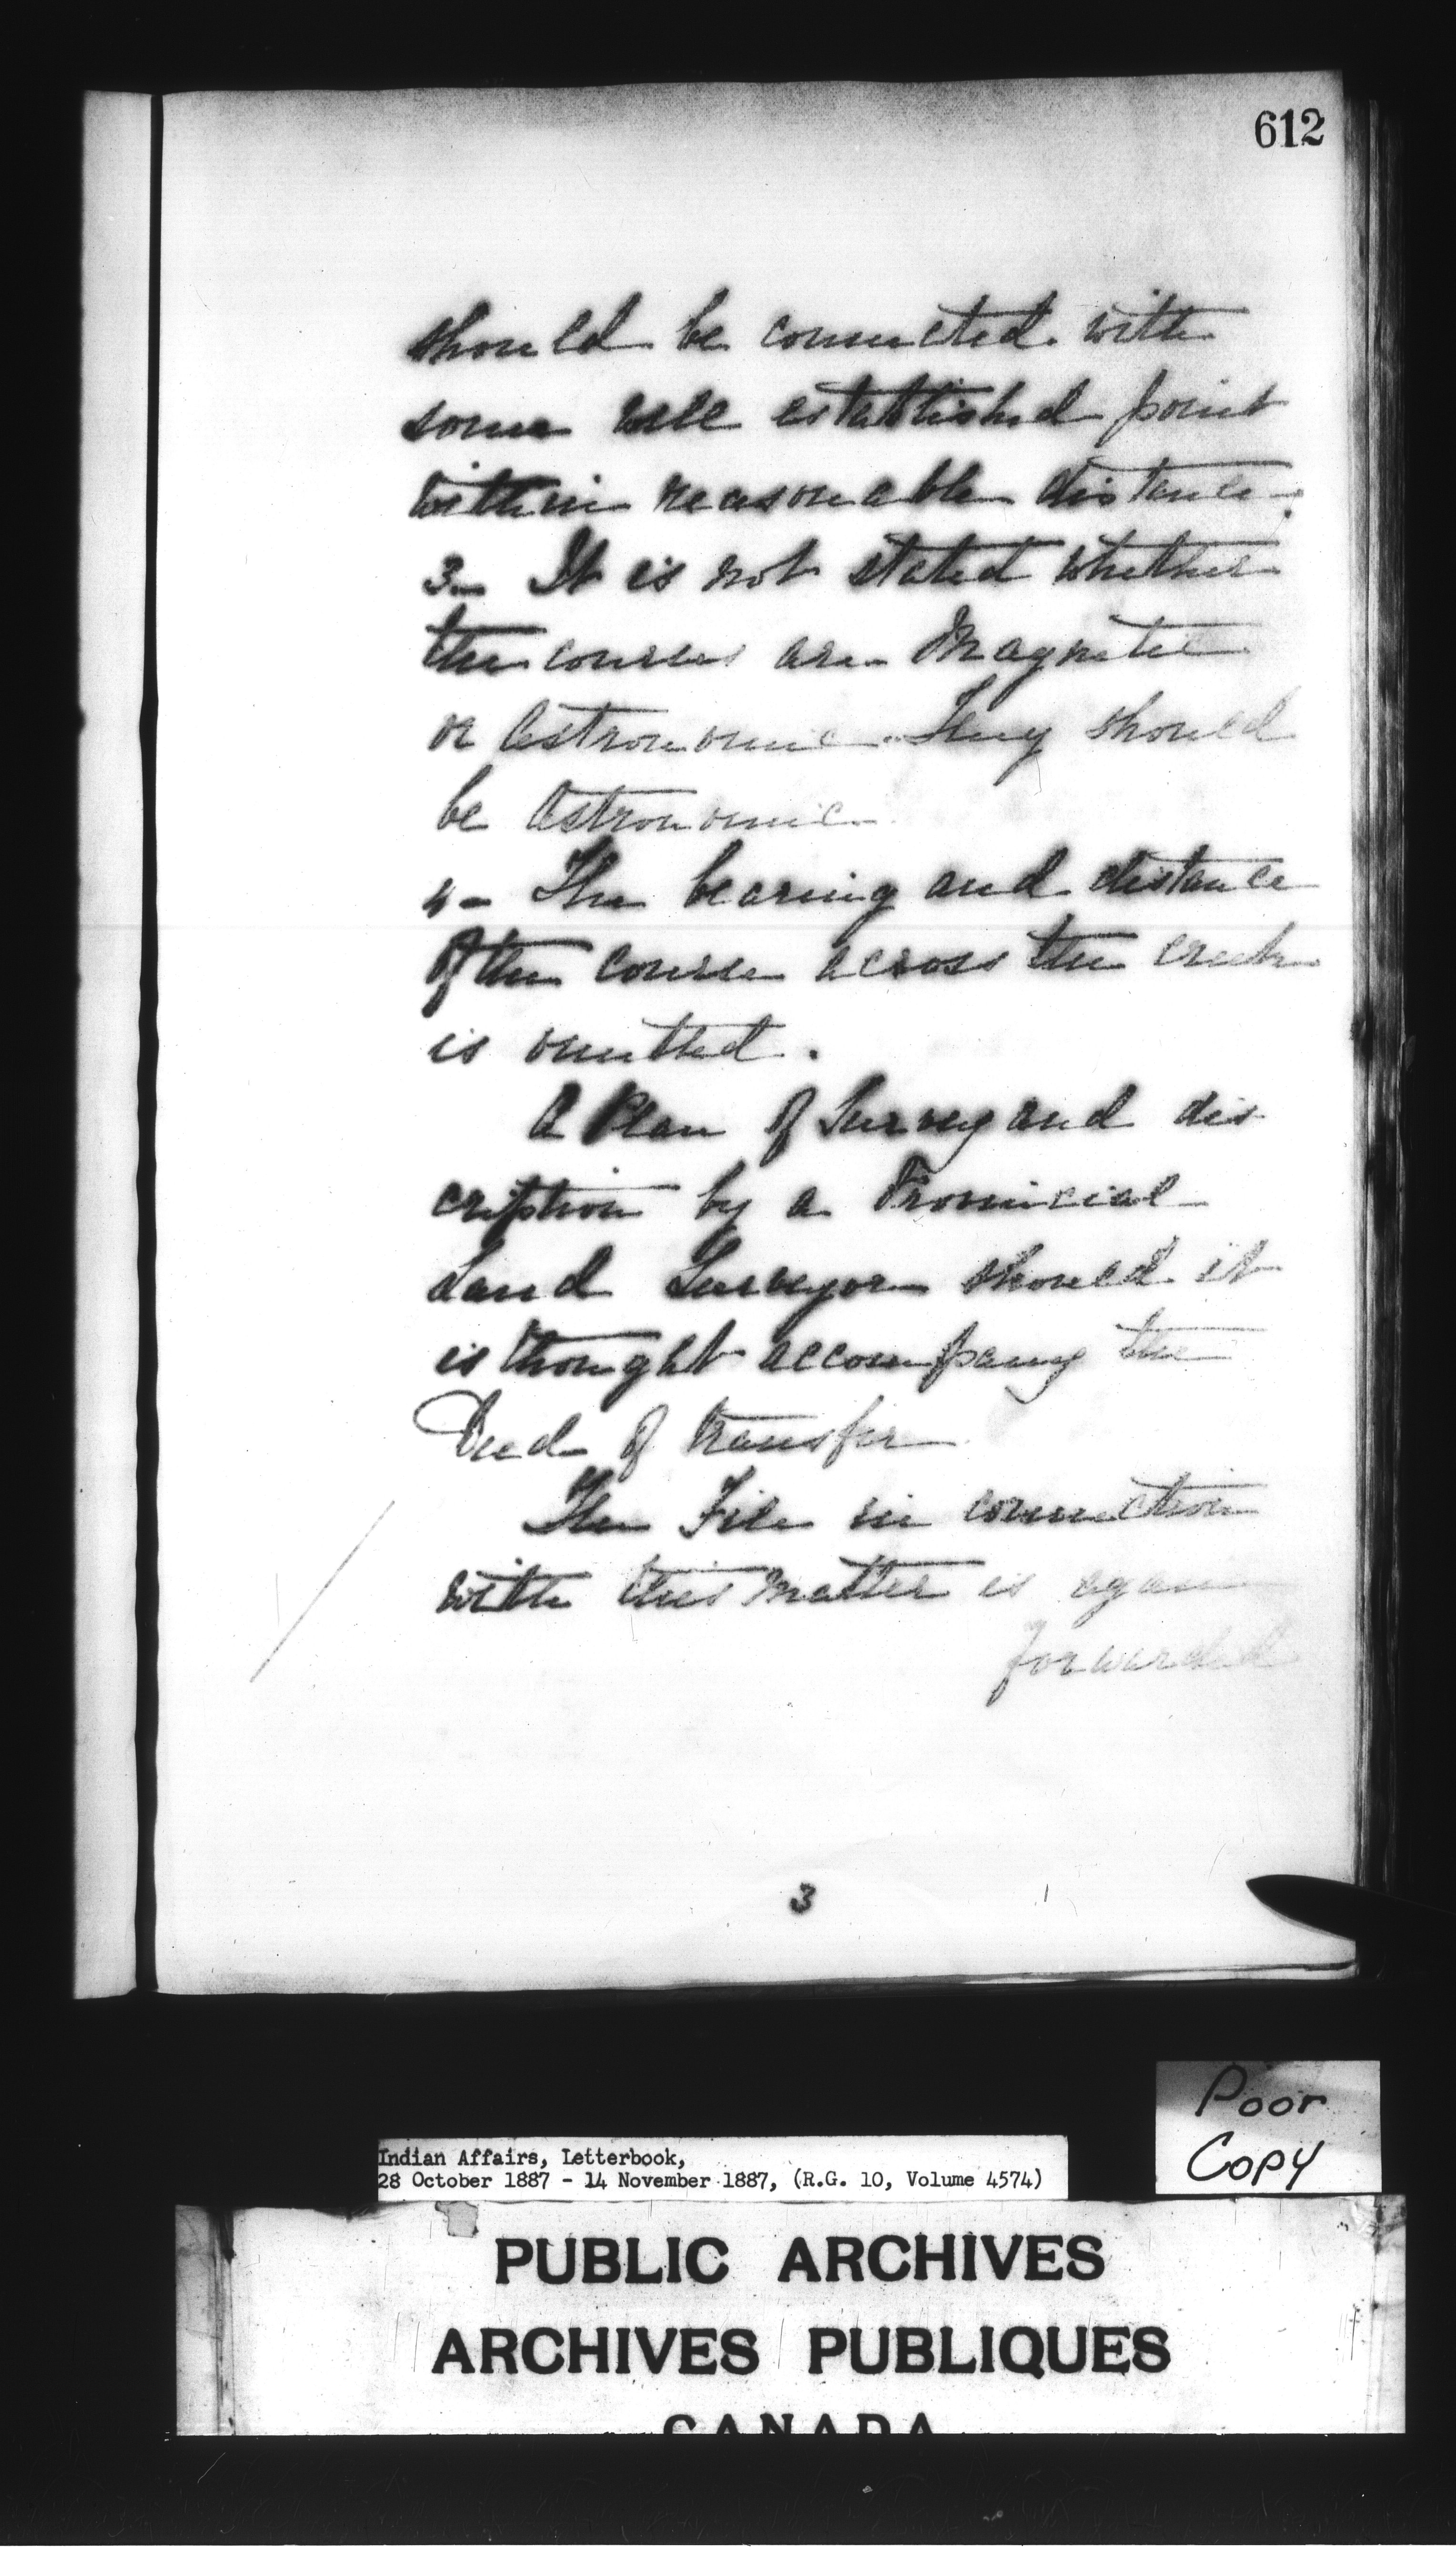 612
should be connected with
some well established point
within reasonable distance.
3- It is not stated whether
the courses are Magnetic
or Astronomic. They should
be Astronomic.
4- The bearing and distance
of the course across the creek
is omitted.
A Plan of Survey and dis
cription by a Provincial
Land Surveyor should it
is thought accompany the
Deed of transfer
The File in connection
with this matter is again
forwarded
3
Poor
Copy
Indian Affairs, Letterbook,
28 October 1887 - 14 November 1887, (R.G. 10, Volume 4574)
PUBLIC ARCHIVES
ARCHIVES PUBLIQUES
CANADA